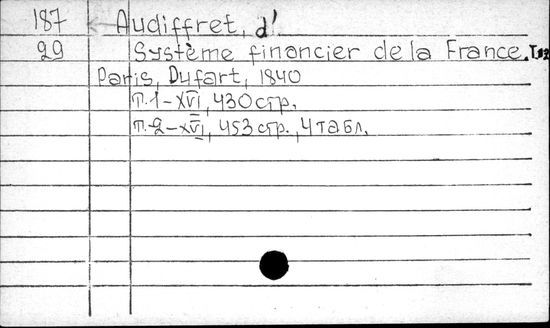 187 Audiffret, d'
29 Système financier de la France. T.1,2
Paris, Dufart, 1840
т.1-XVI, 430 стр.
т.2-XVI, 453 стр., 4 табл.